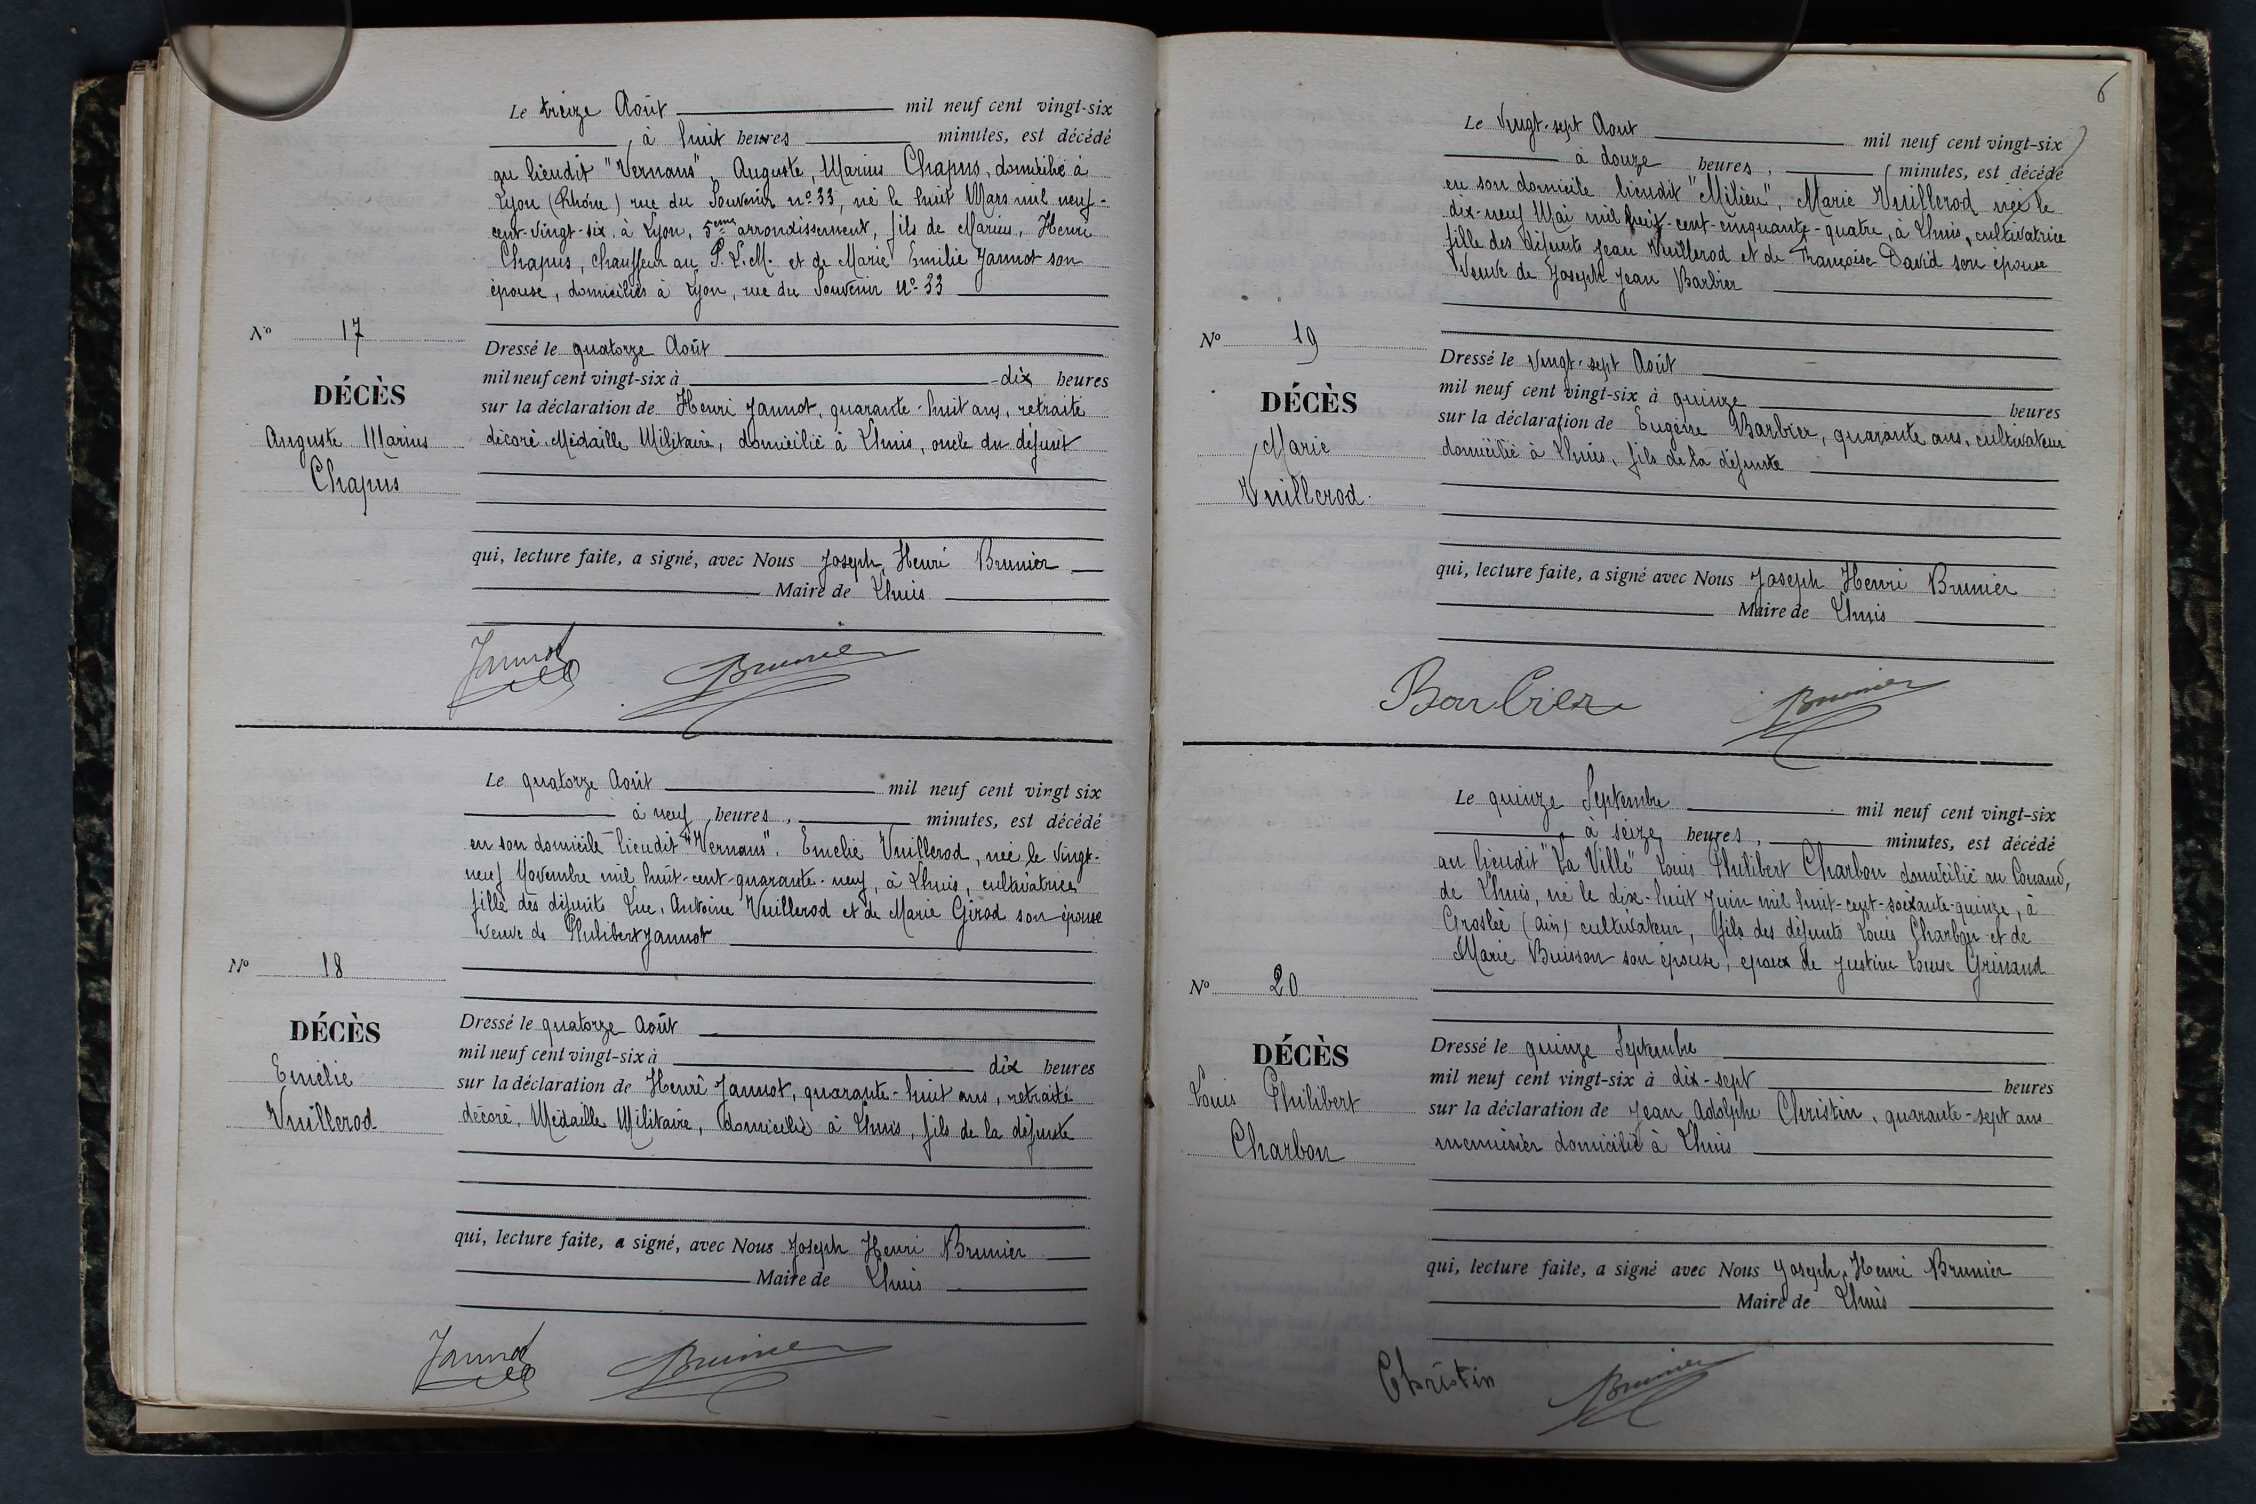 Le treize Août mil neuf cent vingt-six
à huit heures minutes, est décédé
au lieudit "Vernans", Auguste, Marius Chapus, domicilié à
Lyon (Rhône) rue du Souvenir nº 33, né le huit Mars mil neuf-
cent-vingt-six, à Lyon, 5eme arrondissement, fils de Marius, Henri
Chapus, chauffeur au P.L.M. et de Marie Emilie Jannot son
épouse, domiciliés à Lyon, rue du Souvenir Nº 33
Nº 17
DÉCÈS
Auguste Marius
Chapus
Dressé le quatorze Août
mil neuf cent vingt-six à dix heures
sur la déclaration de Henri Jannot, quarante-huit ans, retraité
décoré Médaille Militaire, domicilié à Lhuis, oncle du défunt
qui, lecture faite, a signé, avec Nous Joseph Henri Brunier
Maire de Lhuis
Jannot
Brunier
Le quatorze Août mil neuf cent vingt six
à neuf heures, minutes, est décédé
en son domicile lieudit "Vernans", Emélie Vuillerod, née le vingt-
neuf Novembre mil huit-cent-quarante-neuf, à Lhuis, cultivatrice
fille des défunts Luc, Antoine Vuillerod et de Marie Girod son épouse
Veuve de Philibert Jannot
Nº 18
DÉCÈS
Emélie
Vuillerod
Dressé le quatorze Août
mil neuf cent vingt-six à dix heures
sur la déclaration de Henri Jannot, quarante-huit ans, retraité
décoré, Médaille Militaire, domicilié à Lhuis, fils de la défunte
qui, lecture faite, a signé, avec Nous Joseph Henri Brunier
Maire de Lhuis
Jannot
Brunier
6
Le Vingt-sept Aout mil neuf cent vingt-six
à douze heures, minutes, est décédé
en son domicile lieudit "Milieu", Marie Vuillerod née le
dix-neuf Mai mil huit-cent-cinquante-quatre, à Lhuis, cultivatrice
fille des défunts Jean Vuillerod et de Françoise David son épouse
Veuve de Joseph Jean Barbier
Nº 19
DÉCÈS
Marie
Vuillerod
Dressé le Vingt-sept Août
mil neuf cent vingt-six à quinze heures
sur la déclaration de Eugène Barbier, quarante ans, cultivateur
domicilié à Lhuis, fils de la défunte
qui, lecture faite, a signé avec Nous Joseph Henri Brunier
Maire de Lhuis
Barbier
Brunier
Le quinze Septembre mil neuf cent vingt-six
à seize heures, minutes, est décédé
au lieudit "La Ville" Louis Philibert Charbon domicilié au Conand,
de Lhuis, né le dix-huit Juin mil huit-cent-soixante-quinze, à
Groslée (Ain) cultivateur, fils des défunts Louis Charbon et de
Marie Buisson son épouse, époux de Justine Louise Grinand
Nº 20
DÉCÈS
Louis Philibert
Charbon
Dressé le quinze Septembre
mil neuf cent vingt-six à dix-sept heures
sur la déclaration de Jean Adolphe Christin, quarante-sept ans
menuisier domicilié à Lhuis
qui, lecture faite, a signé avec Nous Joseph Henri Brunier
Maire de Lhuis
Christin
Brunier